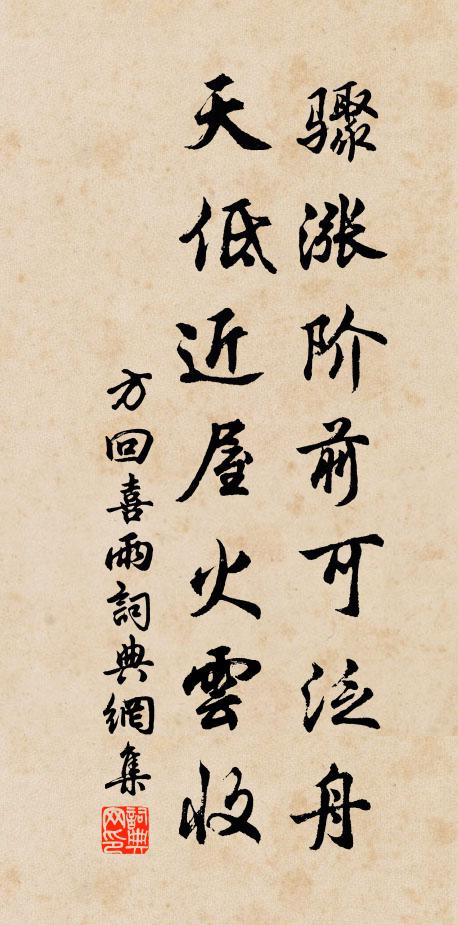 骤涨阶前可泛舟
天低近屋火雲收
方回喜雨詞典網集
詞典網印